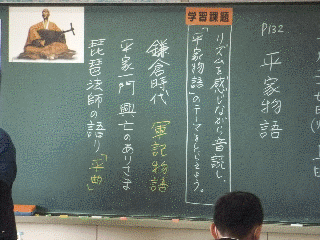 P132
平家物語
学習課題
リズムを感じながら音読し、
「平家物語」のテーマをとらえよう。
鎌倉時代 軍記物語
平家一門 興亡のありさま
琵琶法師の語り「平曲」